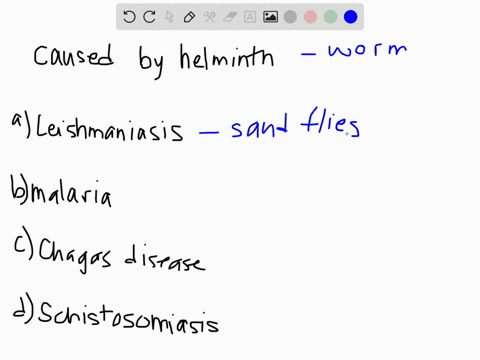 caused by helminth - worm
a) Leishmaniasis - sand flies
b) malaria
c) Chagas disease
d) Schistosomiasis